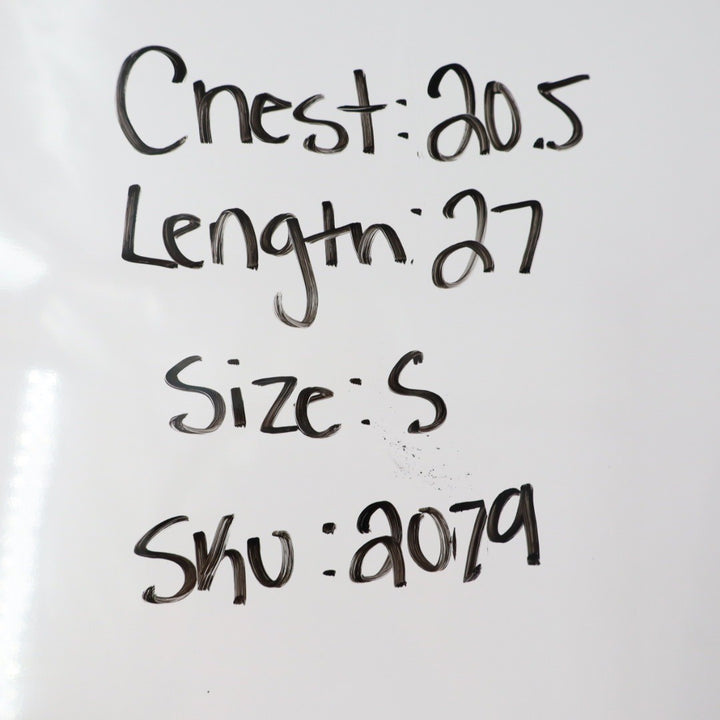 Chest: 20.5
Length: 27
Size: S
Sku: 2079